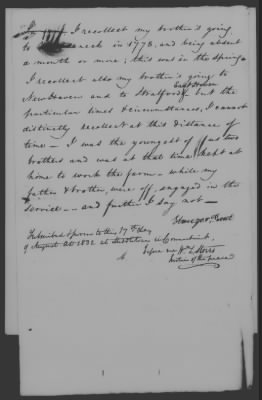 I recollect my brother's going
to neck in 1778, and being absent
a month or more; this was in the spring
I recollect also my brother's going to
East Haven
New Haven and to Stratford, but the
particular times & circumstances, I cannot
distinctly recollect at this distance of
time – I was the youngest of us two
brothers and was at that time kept at
home to work the farm – while my
father & brother, were off, engaged in the
service – – and further I say not –
Ebenezer
Subscribed & sworn to this 17th day
of August AD 1832 at Middletown in Connecticut,
Before me
Justice of the peace